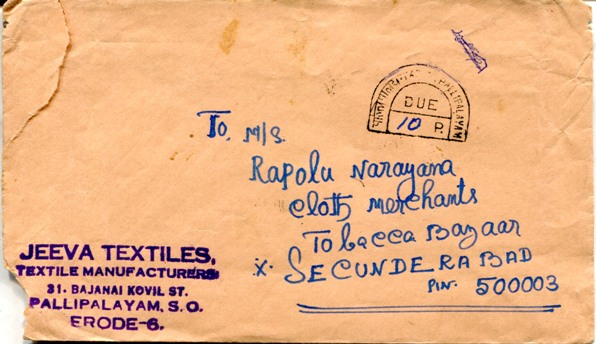 PALLIPALAYAM
DUE
10 P.
To, M/s.
Rapolu Narayana
Cloth Merchants
Tobacca Bazaar
x. SECUNDERABAD
PIN. 500003
JEEVA TEXTILES,
TEXTILE MANUFACTURERS
31. BAJANAI KOVIL ST.
PALLIPALAYAM, S. O.
ERODE-6.